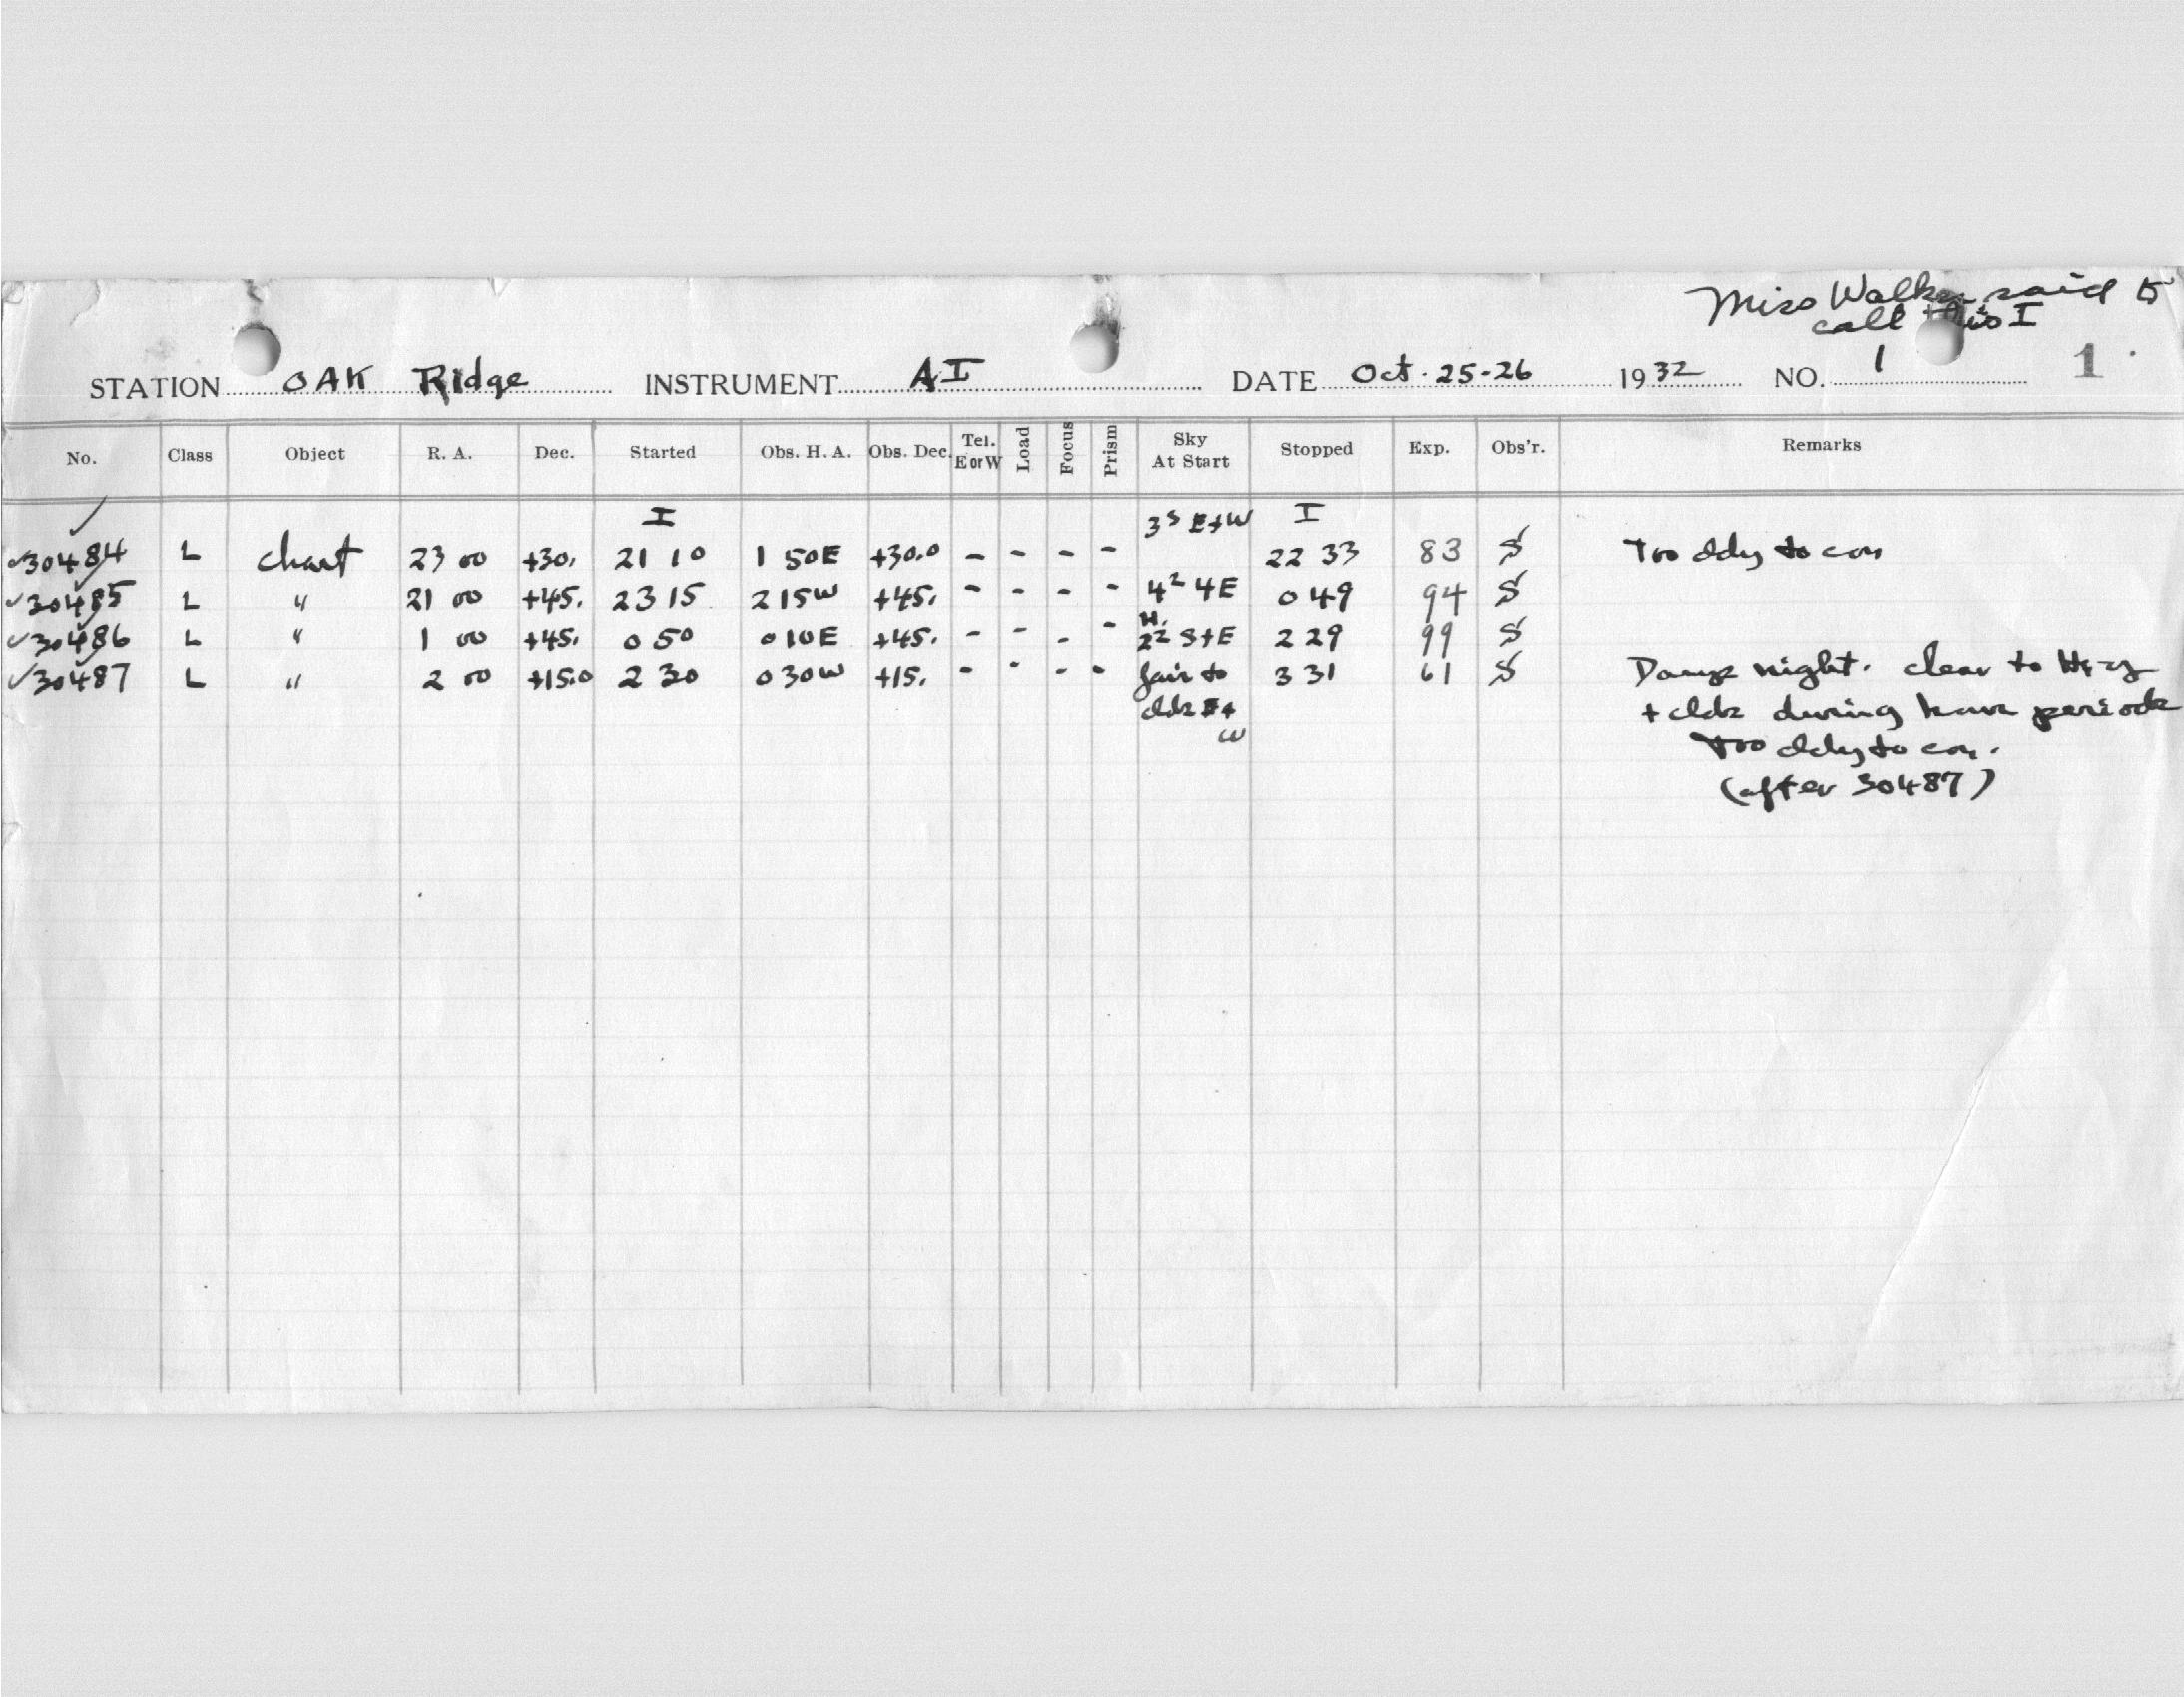 Miss Walker said to
call this I
STATION OAK Ridge INSTRUMENT AI DATE Oct. 25-26 1932 NO. 1 1
No. Class Object R. A. Dec. Started Obs. H. A. Obs. Dec. Tel. E or W Load Focus Prism Sky At Start Stopped Exp. Obs'r. Remarks
I 3⁵ E+W I
30484 L chart 23 00 +30. 21 10 1 50E +30.0 - - - - 22 33 83 S Too cldy to con
30485 L " 21 00 +45. 23 15 2 15W +45. - - - - 4² 4E 0 49 94 S
H.
30486 L " 1 00 +45. 0 50 0 10E +45. - - - - 2² S+E 2 29 99 S
30487 L " 2 00 +15.0 2 30 0 30W +15. - - - - fair to 3 31 61 S Damp night. clear to Hzy
clds E+ + clds during dark periods
W Too cldy to con.
(after 30487)